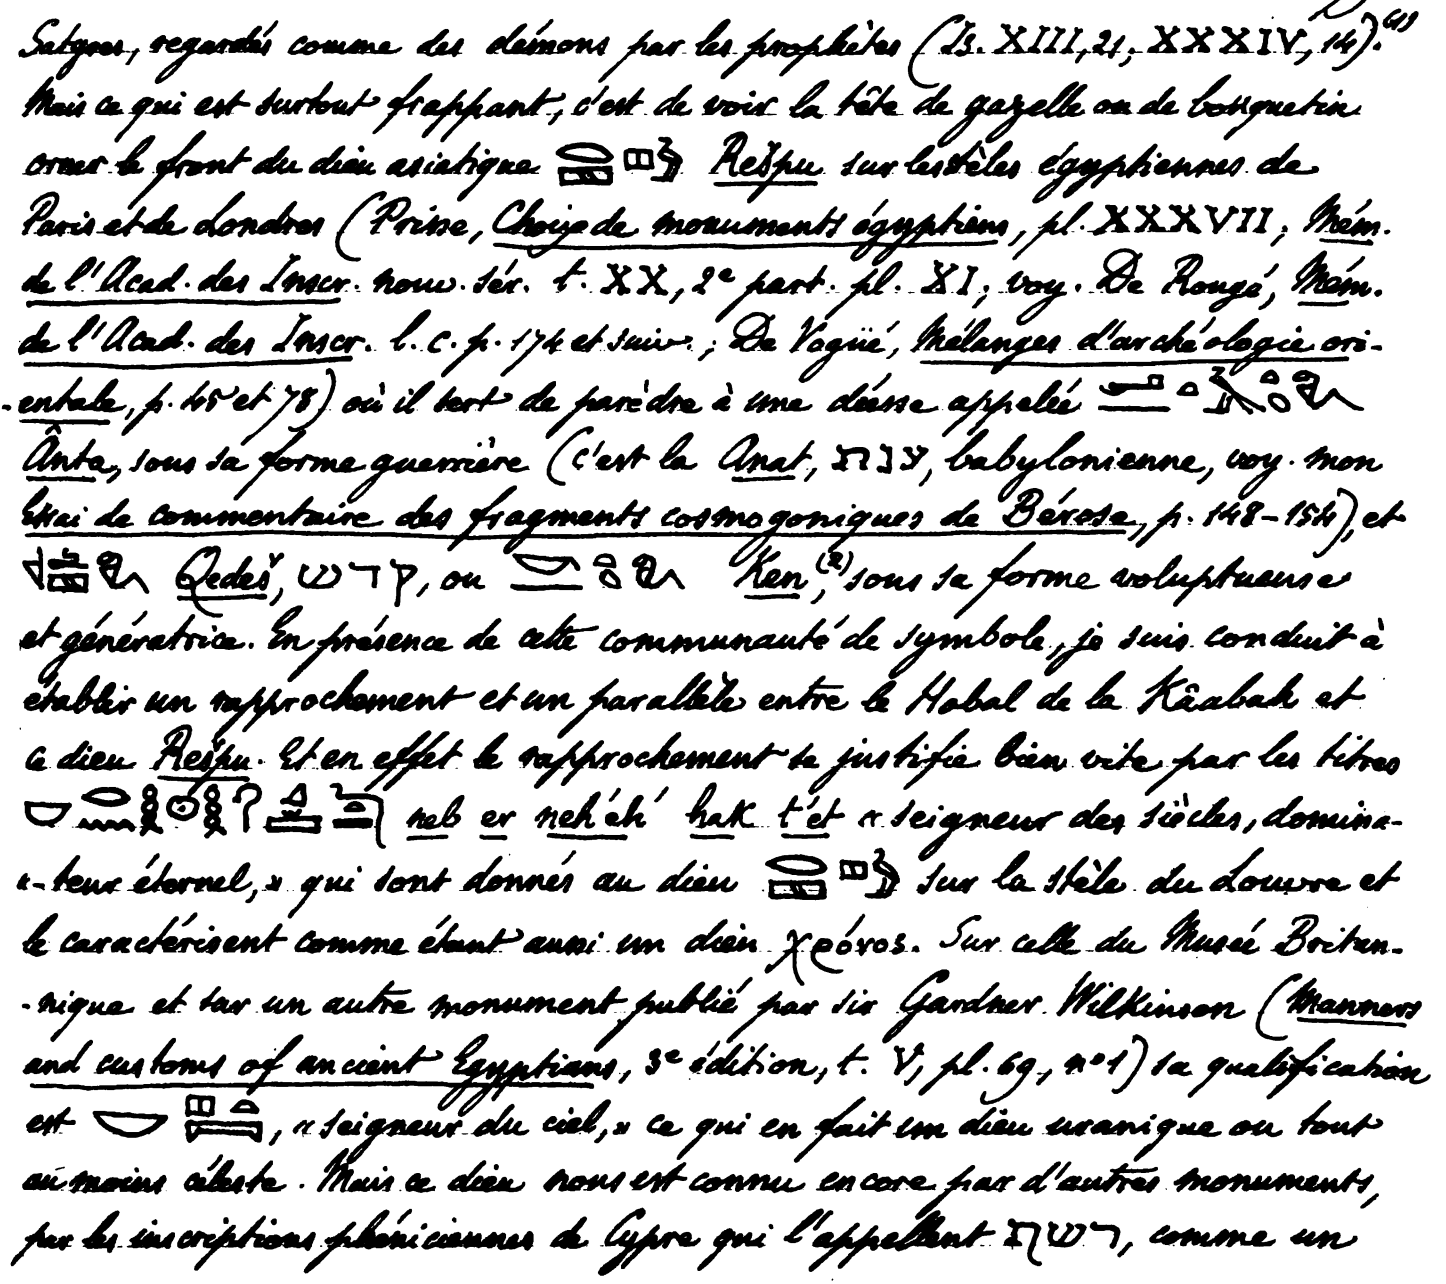 Satyres, regardés comme des démons par les prophètes (Is. XIII, 21; XXXIV, 14).(1)
Mais ce qui est surtout frappant, c'est de voir la tête de gazelle ou de bouquetin
orner le front du dieu asiatique Rešpu sur les stèles égyptiennes de
Paris et de Londres (Prisse, Choix de monuments égyptiens, pl. XXXVII; Mém.
de l'Acad. des Inscr. nouv. sér. t. XX, 2e part. pl. XI; voy. De Rougé, Mém.
de l'Acad. des Inscr. l. c. p. 174 et suiv.; De Vogüé, Mélanges d'archéologie ori-
-entale, p. 45 et 78) où il sert de parèdre à une déesse appelée
Ânta, sous sa forme guerrière (c'est la Anat, ענת, babylonienne, voy. mon
Essai de commentaire des fragments cosmogoniques de Bérose, p. 148-154), et
Qedeš, קדש, ou Ken,(2) sous sa forme voluptueuse
et génératrice. En présence de cette communauté de symbole, je suis conduit à
établir un rapprochement et un parallèle entre le Hobal de la Kâabah et
ce dieu Rešpu. Et en effet le rapprochement se justifie bien vite par les titres
neb er neh'éh' hak t'et « seigneur des siècles, domina-
«-teur éternel, » qui sont donnés au dieu sur la stèle du Louvre et
le caractérisent comme étant aussi un dieu χρόνος. Sur celle du Musée Britan-
-nique et sur un autre monument publié par sir Gardner Wilkinson (Manners
and customs of ancient Egyptians, 3e édition, t. V, pl. 69, nº 1) sa qualification
est , « seigneur du ciel, » ce qui en fait un dieu uranique ou tout
au moins céleste. Mais ce dieu nous est connu encore par d'autres monuments,
par les inscriptions phéniciennes de Cypre qui l'appellent רשף, comme un